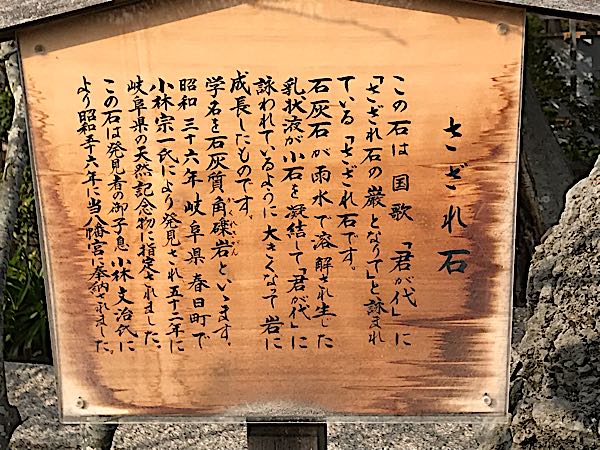 さざれ石
この石は国歌「君が代」に
「さざれ石の巌となりて」と詠まれ
ている「さざれ石です。
石灰石が雨水で溶解され生した
乳状液が小石を凝結して「君が代」に
詠われているように大きくなって岩に
成長したものです。
学名を石灰質角礫岩といいます。
かくれきがん
昭和三十六年岐阜県春日町で
小林宗一氏により発見され五十二年に
岐阜県の天然記念物に指定されました。
この石は発見者の御子息小林文治氏に
より昭和五十六年に当八幡宮に奉納されました。